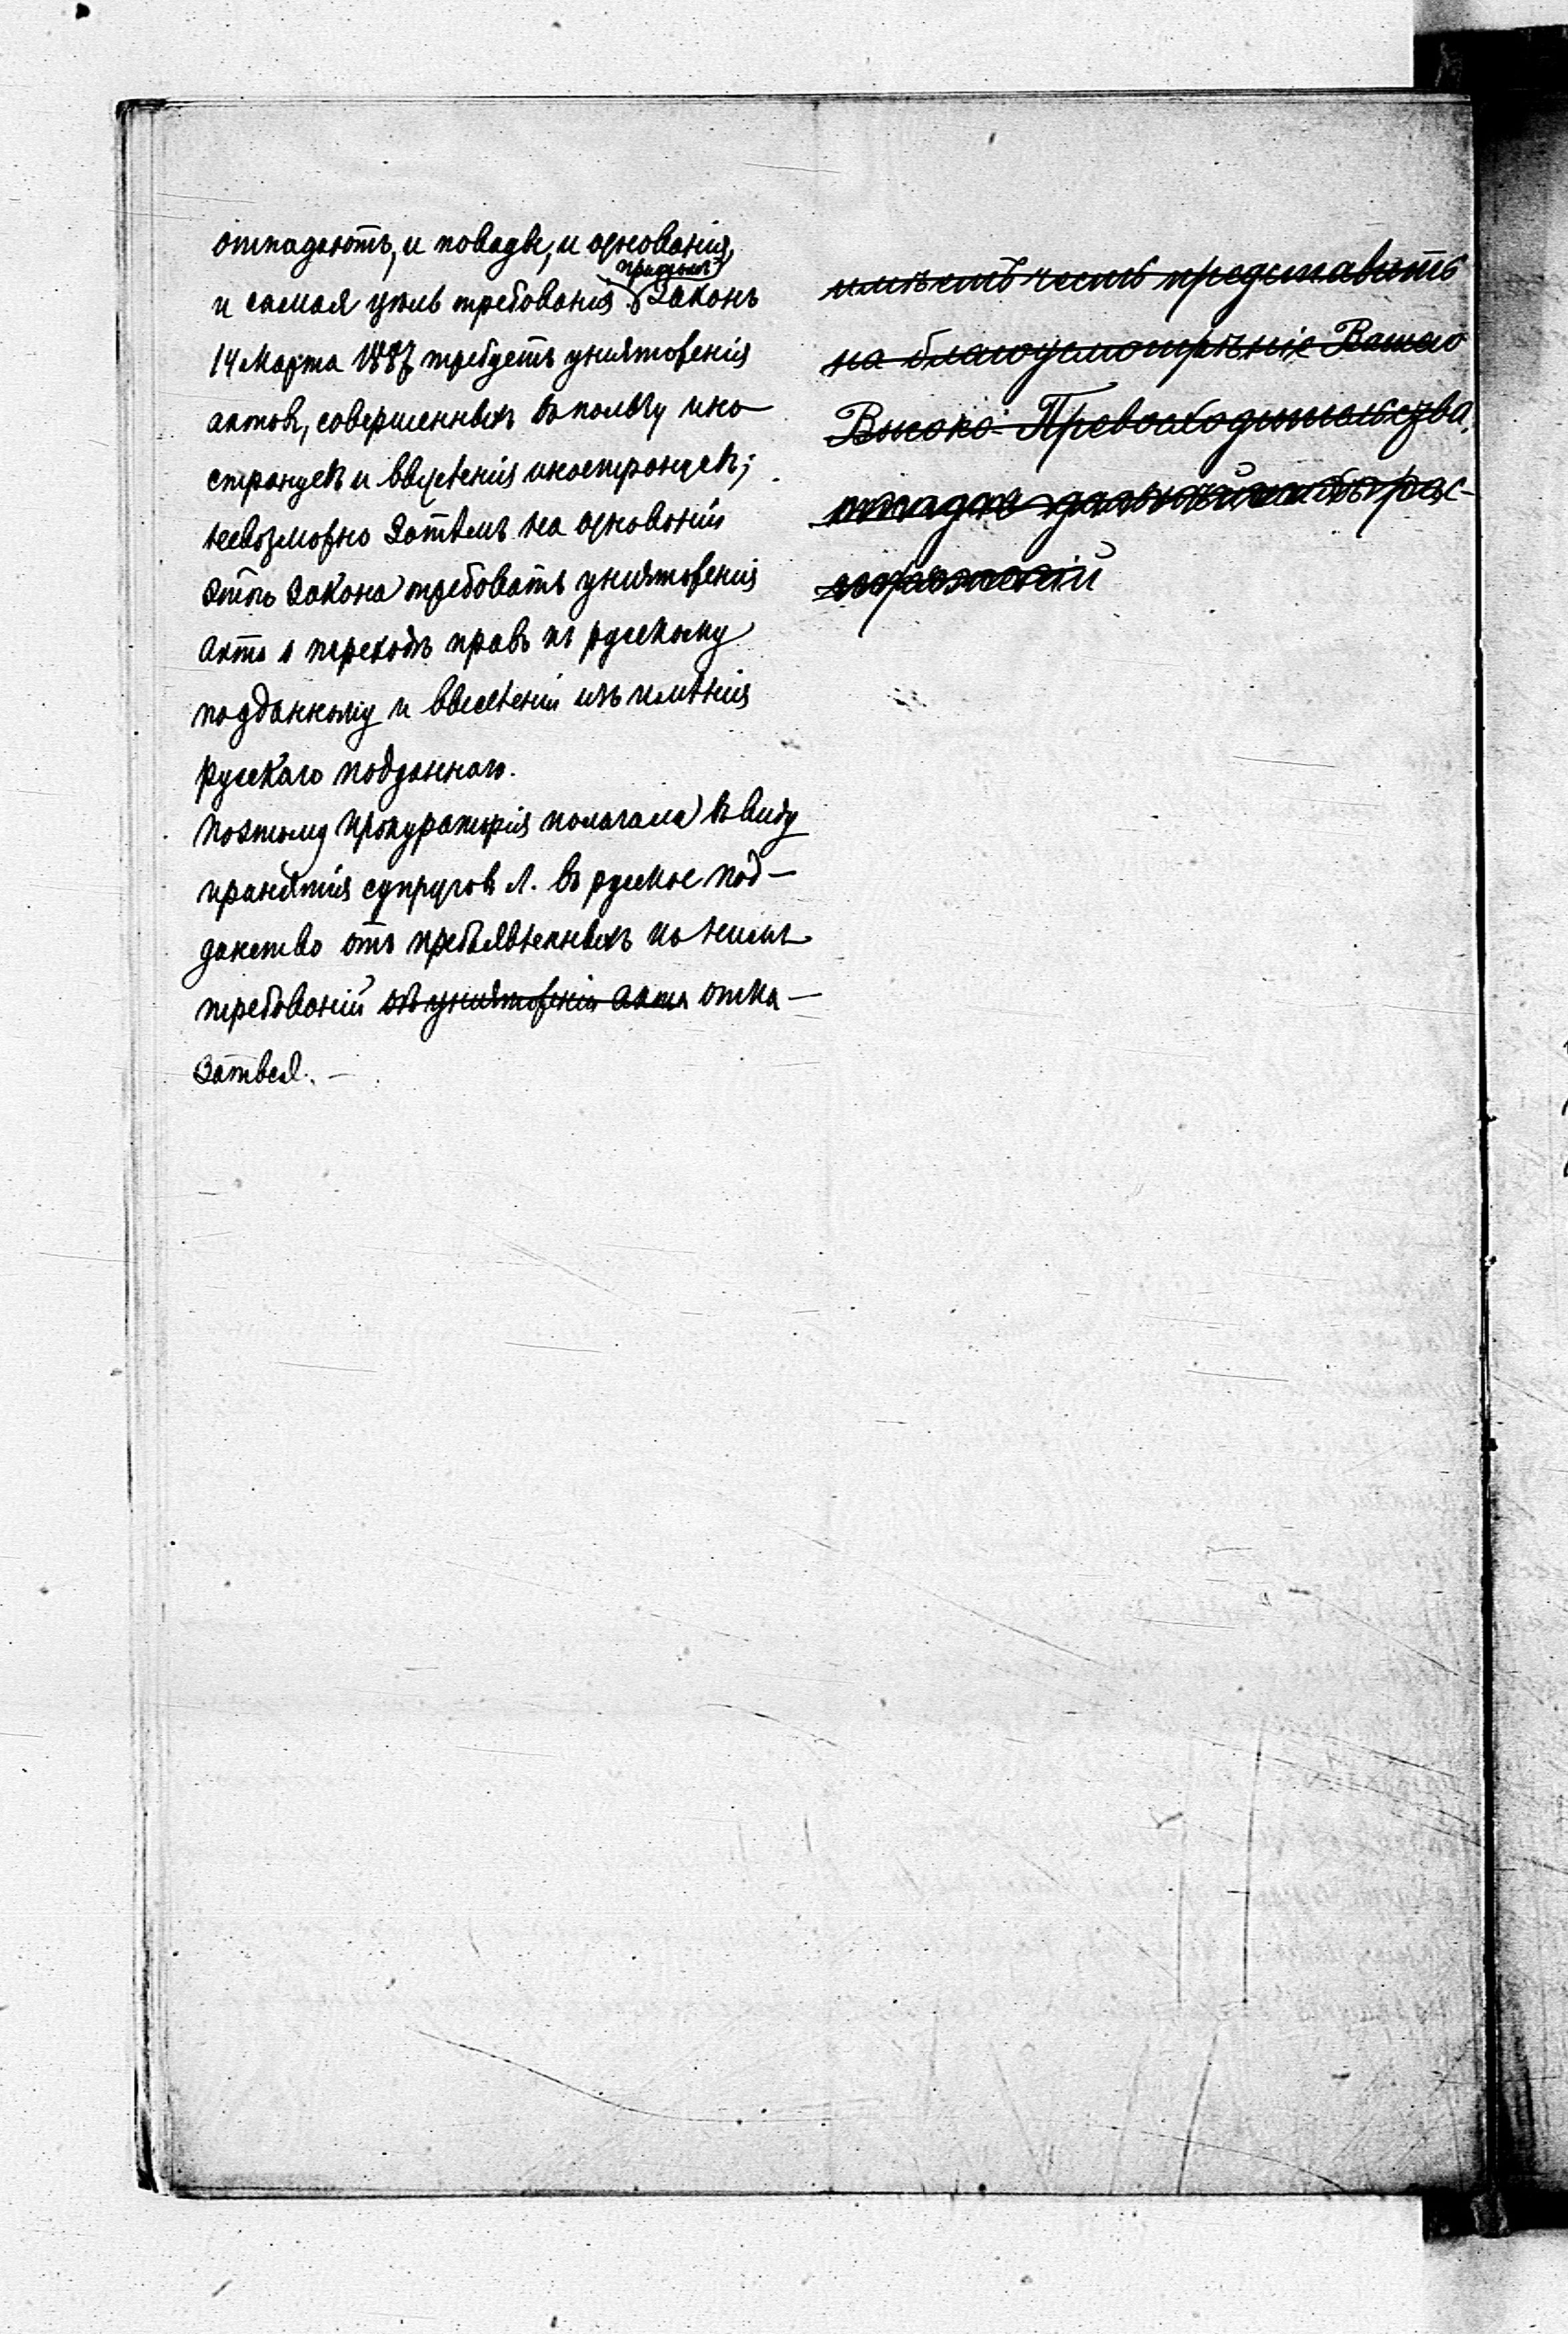 отпадаютъ, и поводы, и основанія,
и самая цѣль требованія. Законъ
14 Марта 1887 требуетъ уничтоженія
актовъ, совершенныхъ въ пользу ино-
странцевъ и выселенія иностранцевъ;
невозможно затѣмъ на основаніи
этого закона требовать уничтоженія
акта о переходѣ правъ къ русскому
подданному и выселенія изъ имѣнія
русскаго подданнаго.
Поэтому Прокураторія полагала въ виду
принятія супруговъ Л. въ русское под-
данство отъ предъявленныхъ къ нимъ
требованій объ уничтоженіи акта отка-
заться. —
имѣетъ честь представить
на благоусмотрѣніе Вашего
Высоко-Превосходительства,
дальнѣйшихъ рас-
поряженій